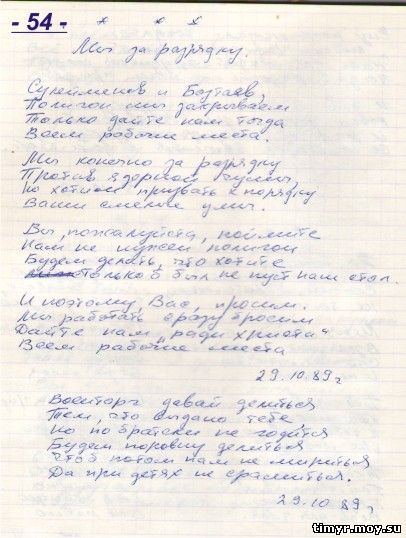 - 54 -
* * *
Мы за разрядку.
Сулейменов и Бозтаев,
Полигон мы закрываем
Только дайте нам тогда
Всем рабочие места.
Мы конечно за разрядку
Против ядерной чумы,
Но хотим призвать к порядку
Ваши смелые умы.
Вы, пожалуйста, поймите
Нам не нужен полигон
Будем делать, что хотите
только б был не пуст наш стол.
И поэтому Вас, просим.
Мы работать сразу бросим
Дайте нам „ради христа"
Всем рабочие места
29.10.89г
Военторг давай делиться
Тем, что выдано тебе,
Но по братски не годится
Будем поровну делиться
Чтоб потом нам не мириться.
Да при детях не срамиться.
29.10 89г
timyr.moy.su